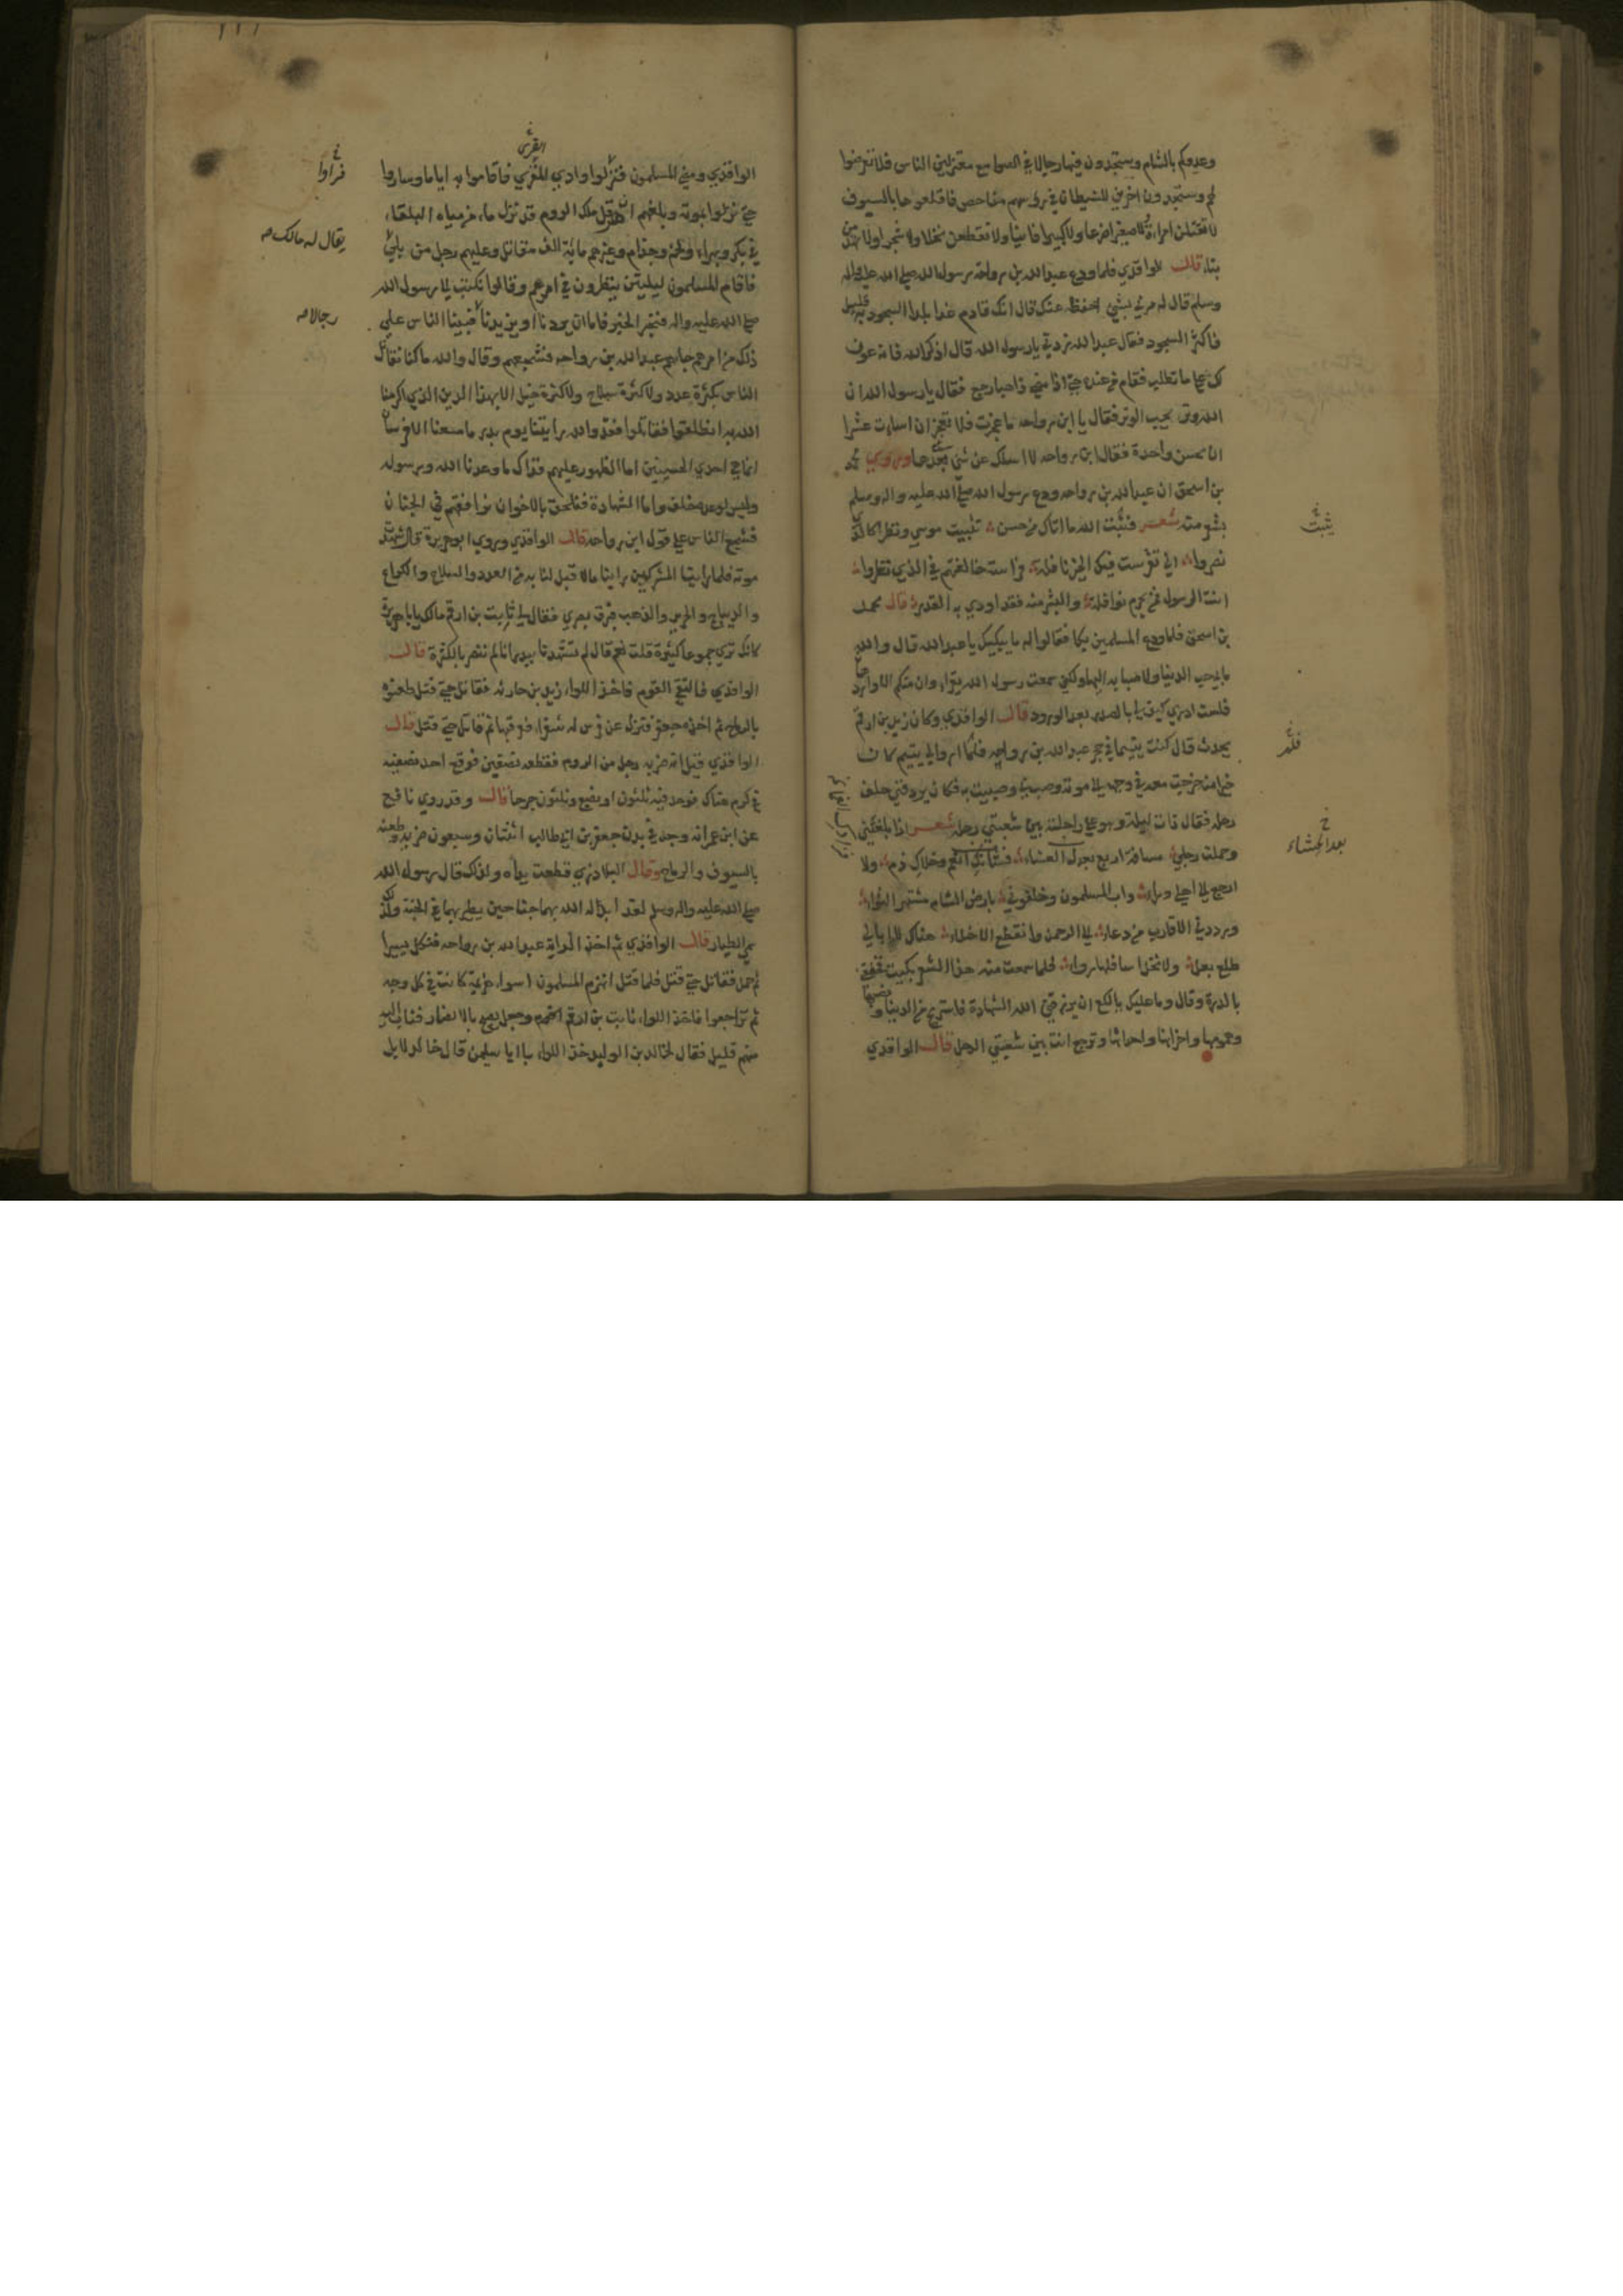 وعدوكم بالشام وستجدون فيها رجالا في الصوامع معتزلين الناس فلا تعرضوا
لهم وستجدون اخرين للشيطان في رؤسهم مفاحص فاقلعوها بالسيوف
لا تقتلن امراة ولا صغيرا ضرعا ولا كبيرا فانيا ولا تقطعن نخلا ولا شجرا ولا تهدمن
بناء قال الواقدي فلما ودع عبد الله بن رواحة رسول الله صلى الله عليه واله
وسلم قال له مرني بشي احفظه عنك قال انك قادم غدا بلدا السجود به قليل
فاكثر السجود فقال عبد الله زدني يا رسول الله قال اذكر الله فانه عون
لك على ما تطلب فقام من عنده حتى اذا مضى ذاهبا رجع فقال يا رسول الله ان
الله وتر يحب الوتر فقال يا ابن رواحه ما عجزت فلا تعجز ان اسات عشرا
ان تحسن واحدة فقال ابن رواحه لا اسلك عن شي بعدها وروى محمد
بن اسحق ان عبد الله بن رواحه ودع رسول الله صلى الله عليه واله وسلم
بشعر منه شعر فثبت الله ما اتاك من حسن تثبيت موسى ونصرا كالذي
نصروا اني تفرست فيك الخير نافلة فراسة خالفتهم في الذي نظروا
انت الرسول فمن يحرم نوافله والبشر منه فقد اودى به القدر قال محمد
بن اسحق فلما ودع المسلمين بكا فقالوا له ما يبكيك يا عبد الله قال والله
ما بي حب الدنيا ولا صبابه اليها ولكني سمعت رسول الله يقرا وان منكم الا واردها
فلست ادري كيف لي بالصدر بعد الورود قال الواقدي وكان زيد بن ارقم
يحدث قال كنت يتيما في حجر عبد الله بن رواحه فلم ار والي يتيم كان
خيرا منه خرجت معه في وجهه الى موته وصب بي وصببت به فكان يردفني خلف
رحله فقال ذات ليلة وهو على راحلته بين شعبتي رحله شعر اذا بلغتني
وحملت رحلي مسافة اربع بعد العشاء فشانك انعم وخلاك ذم ولا
ارجع الى اهلي وراء واب المسلمون وخلفوني بارض الشام مشتهر الثواء
وزودني الاقارب من دعاء الى الرحمن وانقطع الاخاء هنالك لا ابالي
طلع بعل ولا نخل اسافلها رواء فلما سمعت منه هذا الشعر بكيت فخفقني
بالدرة وقال وما عليك يا لكع ان يرزقني الله الشهادة فاستريح من الدنيا ونصبها
وهمومها واحزانها واحداثها وترجع انت بين شعبتي الرحل قال الواقدي
يثبت
فلم
بعد الحساء
الواقدي ومضى المسلمون فنزلوا وادي القرى فاقاموا به اياما وساروا
حتى نزلوا بموته وبلغهم ان هرقل ملك الروم قد نزل ماء من مياه البلقاء
في بكر وبهراء ولخم وجذام وغيرهم مائة الف مقاتل وعليهم رجل من بلي
فاقام المسلمون ليلتين ينظرون في امرهم وقالوا نكتب الى رسول الله
صلى الله عليه واله فنخبره الخبر فاما ان يردنا او يزيدنا فبينا الناس على
ذلك من امرهم جاهم عبد الله بن رواحه فشجعهم وقال والله ما كنا نقاتل
الناس بكثرة عدد ولا كثرة سلاح ولا كثرة خيل الا بهذا الدين الذي اكرمنا
الله به انطلقوا فقاتلوا فقد والله رايتنا يوم بدر ما معنا الا فرسان
انما هي احدى الحسنيين اما الظهور عليهم فذاك ما وعدنا الله ورسوله
وليس لوعده خلف واما الشهادة فنلحق بالاخوان نرافقهم في الجنان
فشجع الناس على قول ابن رواحه قال الواقدي وروى ابو هريرة قال شهدت
موته فلما راينا المشركين راينا ما لا قبل لنا به من العدد والسلاح والكراع
والديباج والحرير والذهب فبرق بصري فقال لي ثابت بن ارقم مالك يا با هريرة
كانك ترى جموعا كثيرة قلت نعم قال لم تشهدنا ببدر انا لم ننصر بالكثرة قال
الواقدي فالتقى القوم فاخذ اللواء زيد بن حارثه فقاتل حتى قتل طعنوه
بالرماح ثم اخذه جعفر فنزل عن فرس له شقراء فعرقبها ثم قاتل حتى قتل قال
الواقدي قيل انه ضربه رجل من الروم فقطعه نصفين فوقع احد نصفيه
في كرم هناك فوجد فيه ثلثون او بضع وثلثون جرحا قال وقد روى نافع
عن ابن عمر انه وجد في بدن جعفر بن ابي طالب اثنتان وسبعون ضربه وطعنه
بالسيوف والرماح وقال البلاذري قطعت يداه ولذلك قال رسول الله
صلى الله عليه واله وسلم لقد ابدله الله بهما جناحين يطير بهما في الجنة ولذلك
سمي الطيار قال الواقدي ثم اخذ الراية عبد الله بن رواحه فنكل يسيرا
ثم حمل فقاتل حتى قتل فلما قتل انهزم المسلمون اسوا هزيمة كانت في كل وجه
ثم تراجعوا فاخذ اللواء ثابت بن ارقم وجعل يصيح بالانصار فثاب اليه
منهم قليل فقال لخالد بن الوليد خذ اللواء يا ابا سليمن قال خالد لا بل
القرى
فراوا
يقال له مالك صح
رجالا صح